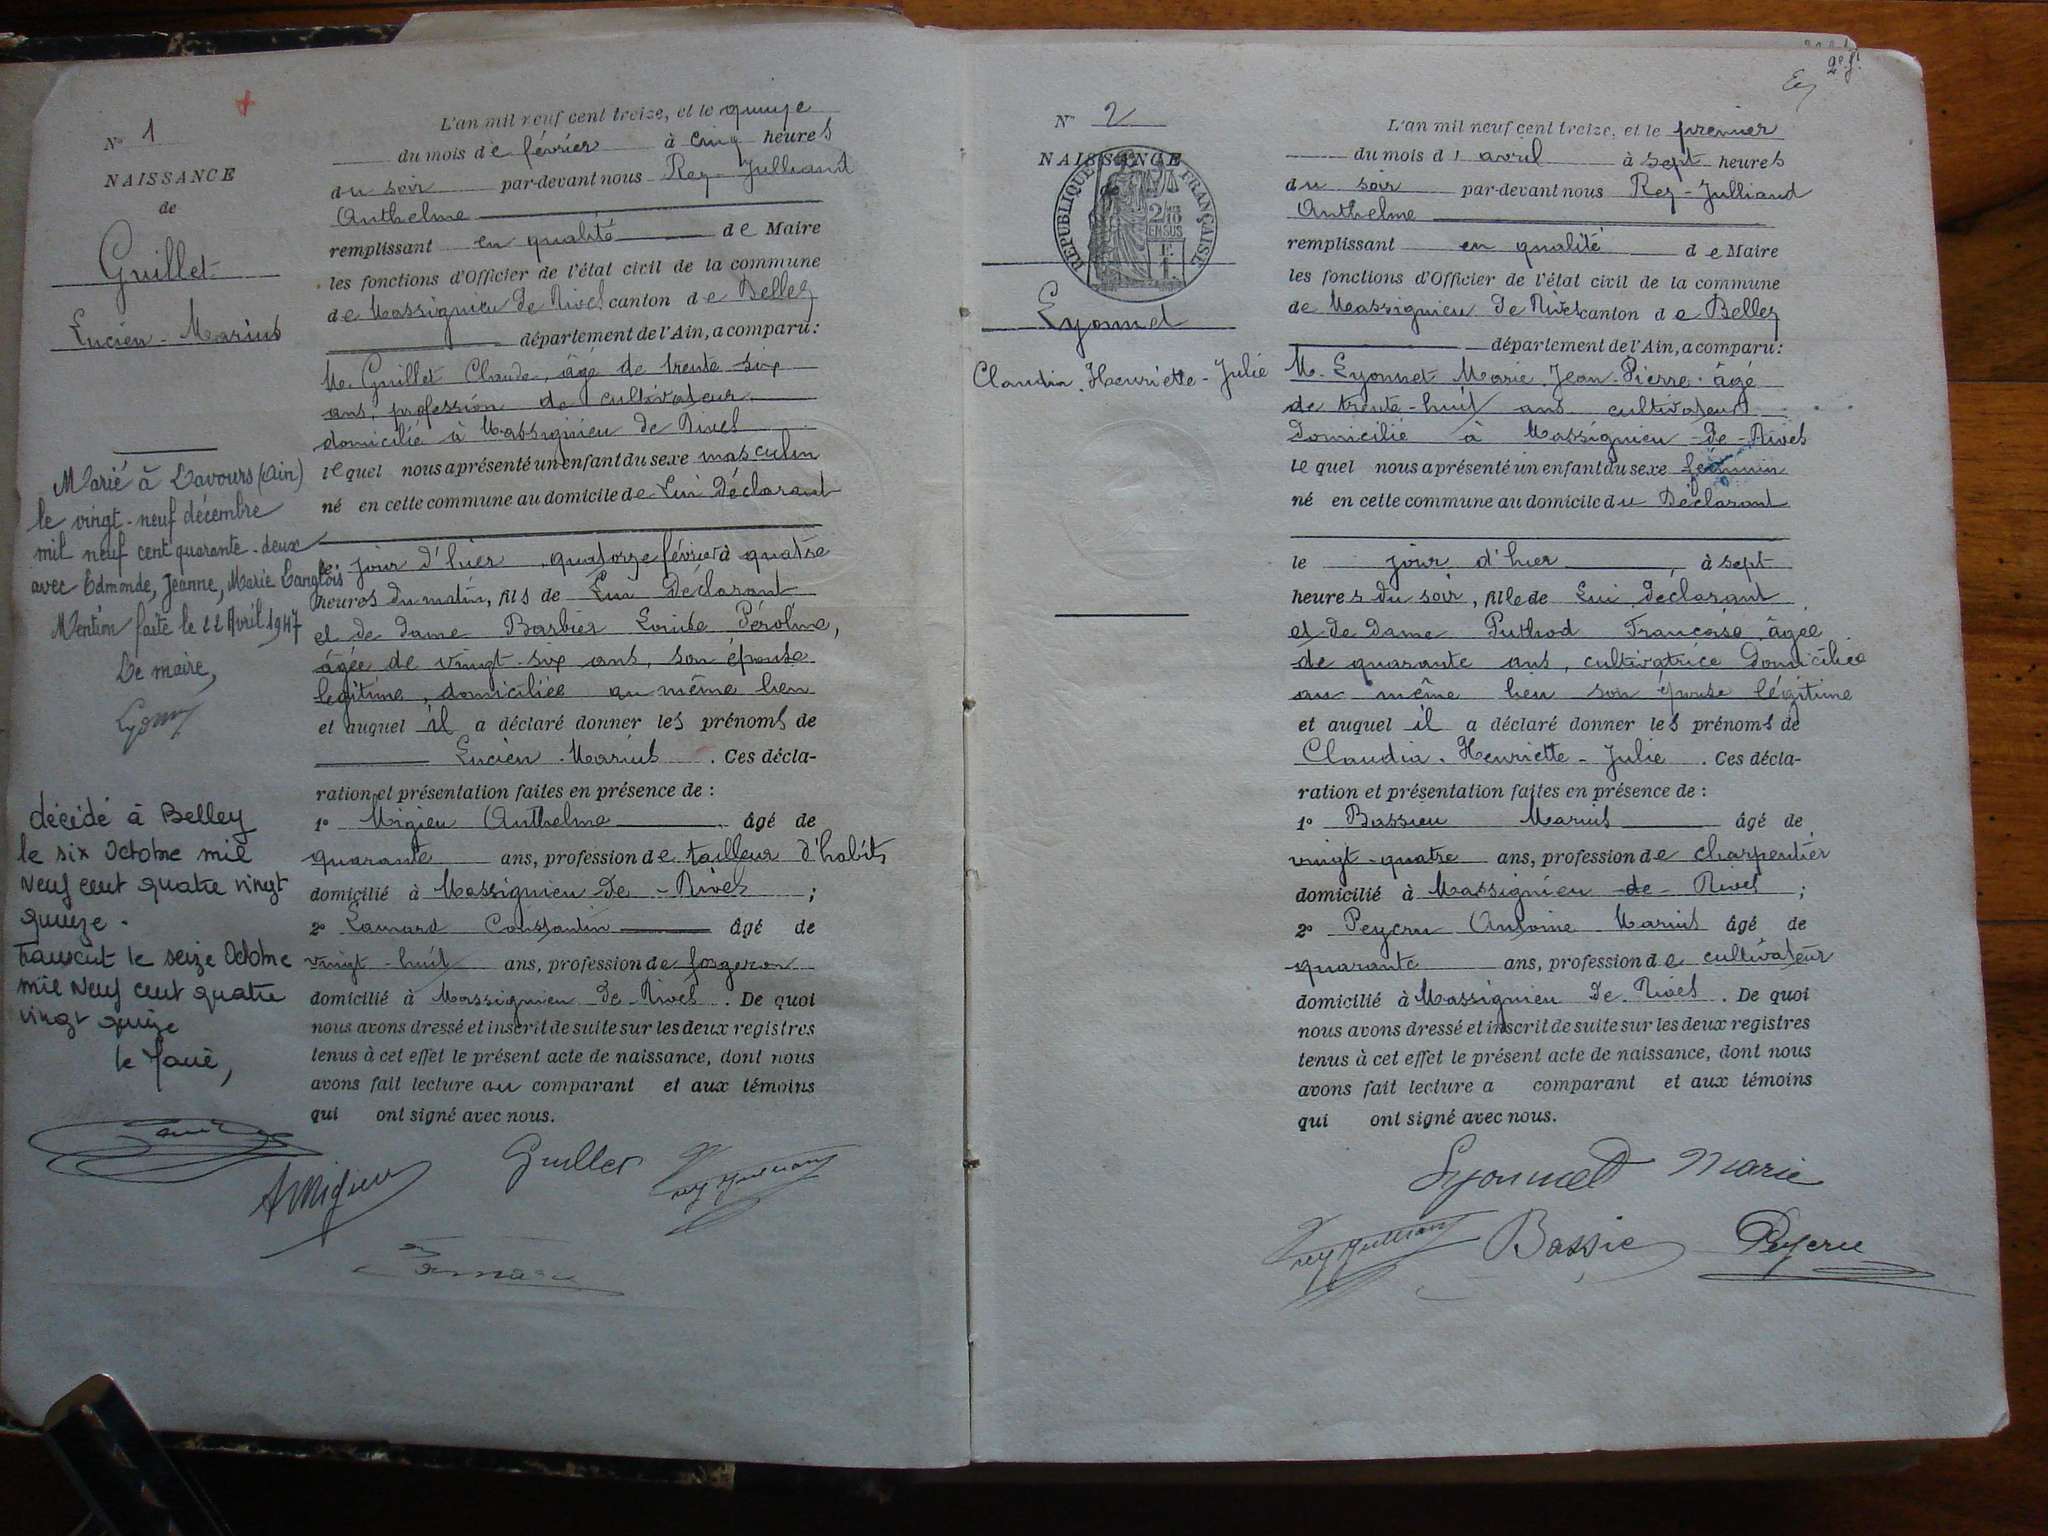 N° 1
NAISSANCE
de
Guillet
Lucien - Marius
Marié à Lavours (Ain)
le vingt-neuf décembre
mil neuf cent quarante-deux
avec Edmonde, Jeanne, Marie Langlois
Mention faite le 22 Avril 1947
Le maire,
décédé à Belley
le six Octobre mil
neuf cent quatre vingt
quinze.
Transcrit le seize Octobre
mil neuf cent quatre
vingt quinze
le Maire,
L'an mil neuf cent treize, et le quinze
du mois de février à cinq heures
du soir par-devant nous Rey-Julliand
Anthelme
remplissant en qualité de Maire
les fonctions d'Officier de l'état civil de la commune
de Massignieu de Rives canton de Belley
département de l'Ain, a comparu :
M. Guillet Claude, âgé de trente six
ans, profession de cultivateur
domicilié à Massignieu de Rives
lequel nous a présenté un enfant du sexe masculin
né en cette commune au domicile de Lui Déclarant
le jour d'hier quatorze février à quatre
heures du matin, fils de Lui Déclarant
et de dame Barbier Louise Péroline,
âgée de vingt-six ans, son épouse
légitime, domiciliée au même lieu
et auquel il a déclaré donner les prénoms de
Lucien - Marius. Ces décla-
ration et présentation faites en présence de :
1° Migieu Anthelme âgé de
quarante ans, profession de tailleur d'habits
domicilié à Massignieu de - Rives ;
2° Constantin âgé de
vingt-huit ans, profession de forgeron
domicilié à Massignieu de Rives. De quoi
nous avons dressé et inscrit de suite sur les deux registres
tenus à cet effet le présent acte de naissance, dont nous
avons fait lecture au comparant et aux témoins
qui ont signé avec nous.
Guillet
A Migieu
2e f.t
N° 2
NAISSANCE
de
RÉPUBLIQUE FRANÇAISE
2/10 EN SUS
Lyonnet
Claudia - Henriette - Julie
L'an mil neuf cent treize, et le premier
du mois d'avril à sept heures
du soir par-devant nous Rey-Julliand
Anthelme
remplissant en qualité de Maire
les fonctions d'Officier de l'état civil de la commune
de Massignieu de Rives canton de Belley
département de l'Ain, a comparu :
M. Lyonnet Marie Jean-Pierre âgé
de trente-huit ans cultivateur
domicilié à Massignieu-de-Rives
lequel nous a présenté un enfant du sexe féminin
né en cette commune au domicile du Déclarant
le jour d'hier, à sept
heures du soir, fille de Lui déclarant
et de dame Puthod Françoise âgée
de quarante ans, cultivatrice domiciliée
au même lieu son épouse légitime
et auquel il a déclaré donner les prénoms de
Claudia - Henriette - Julie. Ces décla-
ration et présentation faites en présence de :
1° Bassieu Marius âgé de
vingt-quatre ans, profession de charpentier
domicilié à Massignieu-de-Rives ;
2° Peycru Antoine Marius âgé de
quarante ans, profession de cultivateur
domicilié à Massignieu de Rives. De quoi
nous avons dressé et inscrit de suite sur les deux registres
tenus à cet effet le présent acte de naissance, dont nous
avons fait lecture a comparant et aux témoins
qui ont signé avec nous.
Lyonnet Marie
Rey Julliand Bassie Peycru